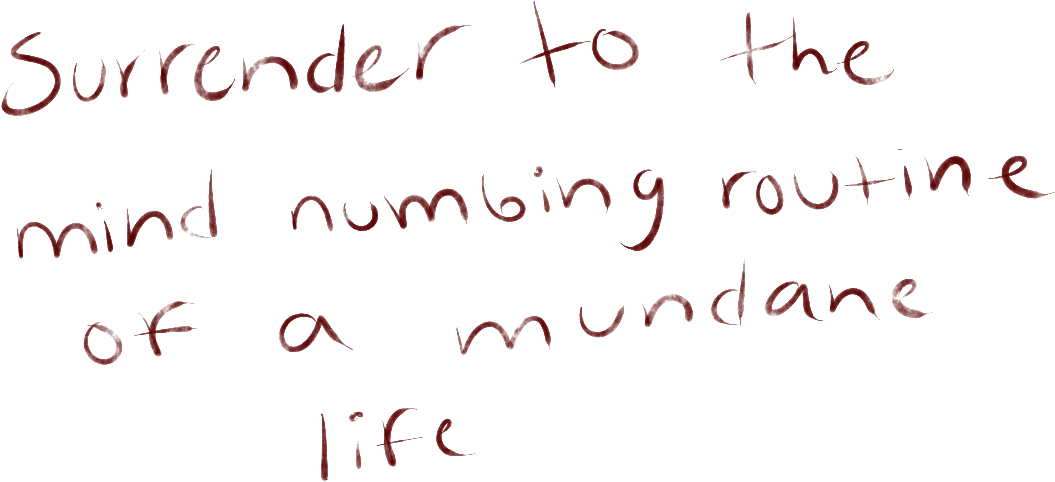 Surrender to the
mind numbing routine
of a mundane
life